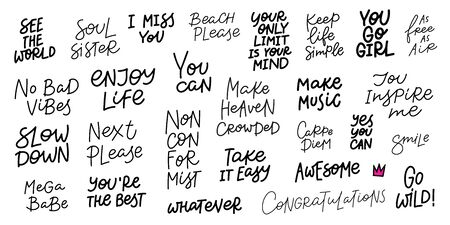 SEE
THE
WORLD
SOUL
SISTER
I MISS
YOU
BEACH
PLEASE
YOUR
ONLY
LIMIT
IS YOUR
MIND
Keep
life
simple
YOU
GO
GIRL
AS
free
AS
AIR
No BAD
VIBES
ENJOY
LIFE
YOU
CAN
MAKE
HEAVEN
CROWDED
MAKE
MUSIC
YOU
INSPIRE
me
SLOW
DOWN
NEXT
PLEASE
NON
CON
FOR
MIST
TAKE
IT EASY
CARPE
DIEM
YES
YOU
CAN
Smile
MEGA
BABE
YOU'RE
THE BEST
WHATEVER
AWESOME
CONGRATULATIONS
GO
WILD!